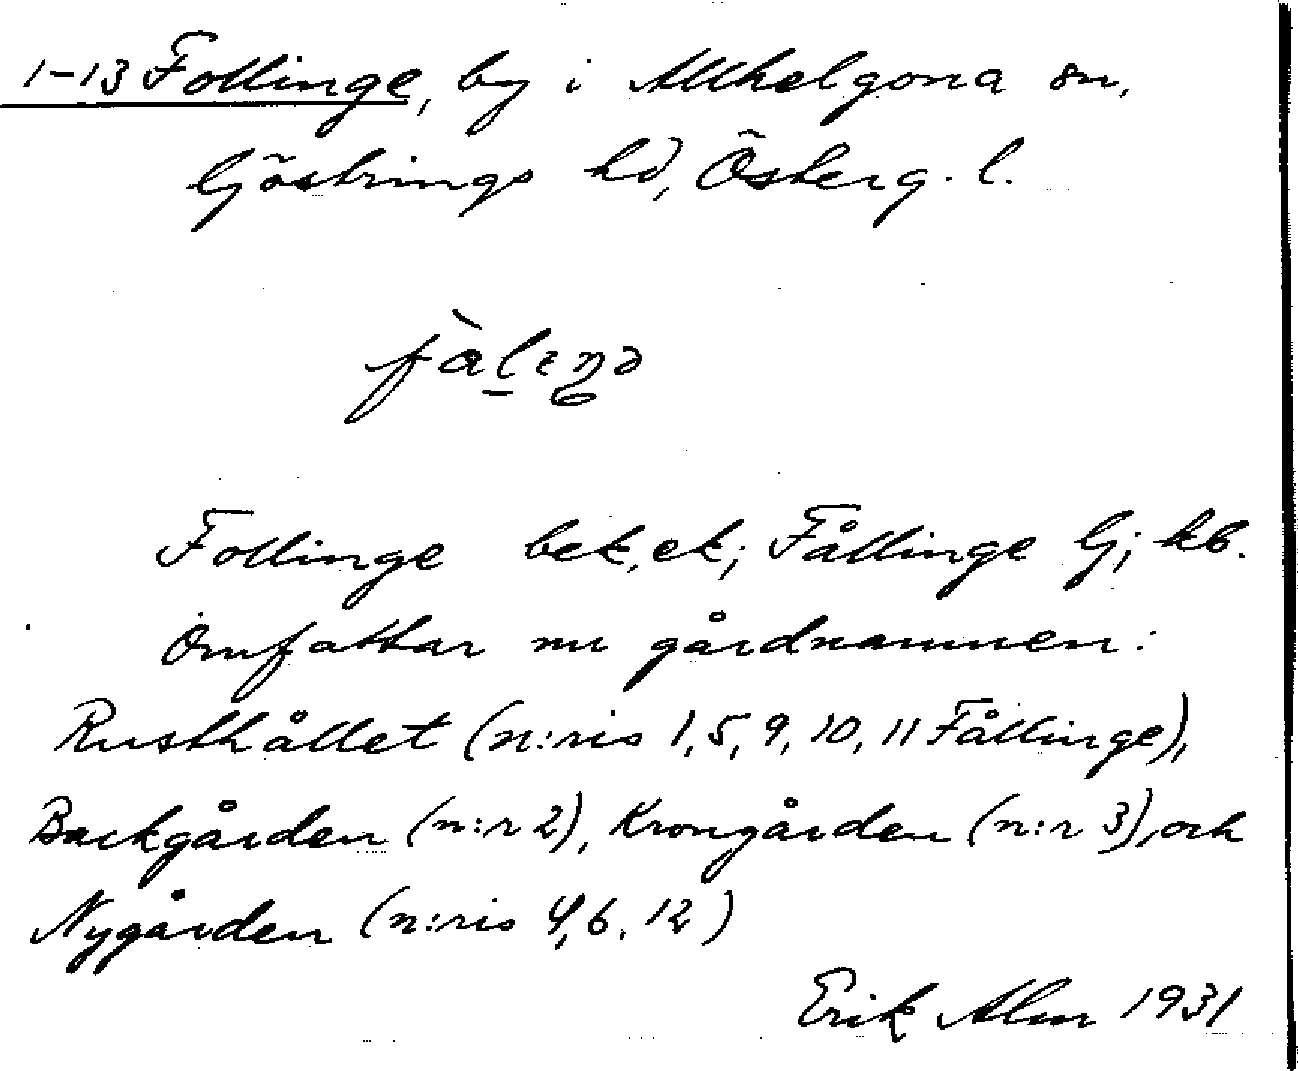 1-13 Follinge, by i Allhelgona sn,
Göstrings hd, Österg. l.
fàlɩŋə
Follinge bek, ek; Fållinge Gj; kb.
Omfattar nu gårdnamnen:
Rusthållet (n:ris 1, 5, 9, 10, 11 Fållinge),
Backgården (n:r 2), Krongården (n:r 3), och
Nygården (n:ris 4, 6, 12)
Erik Alm 1931